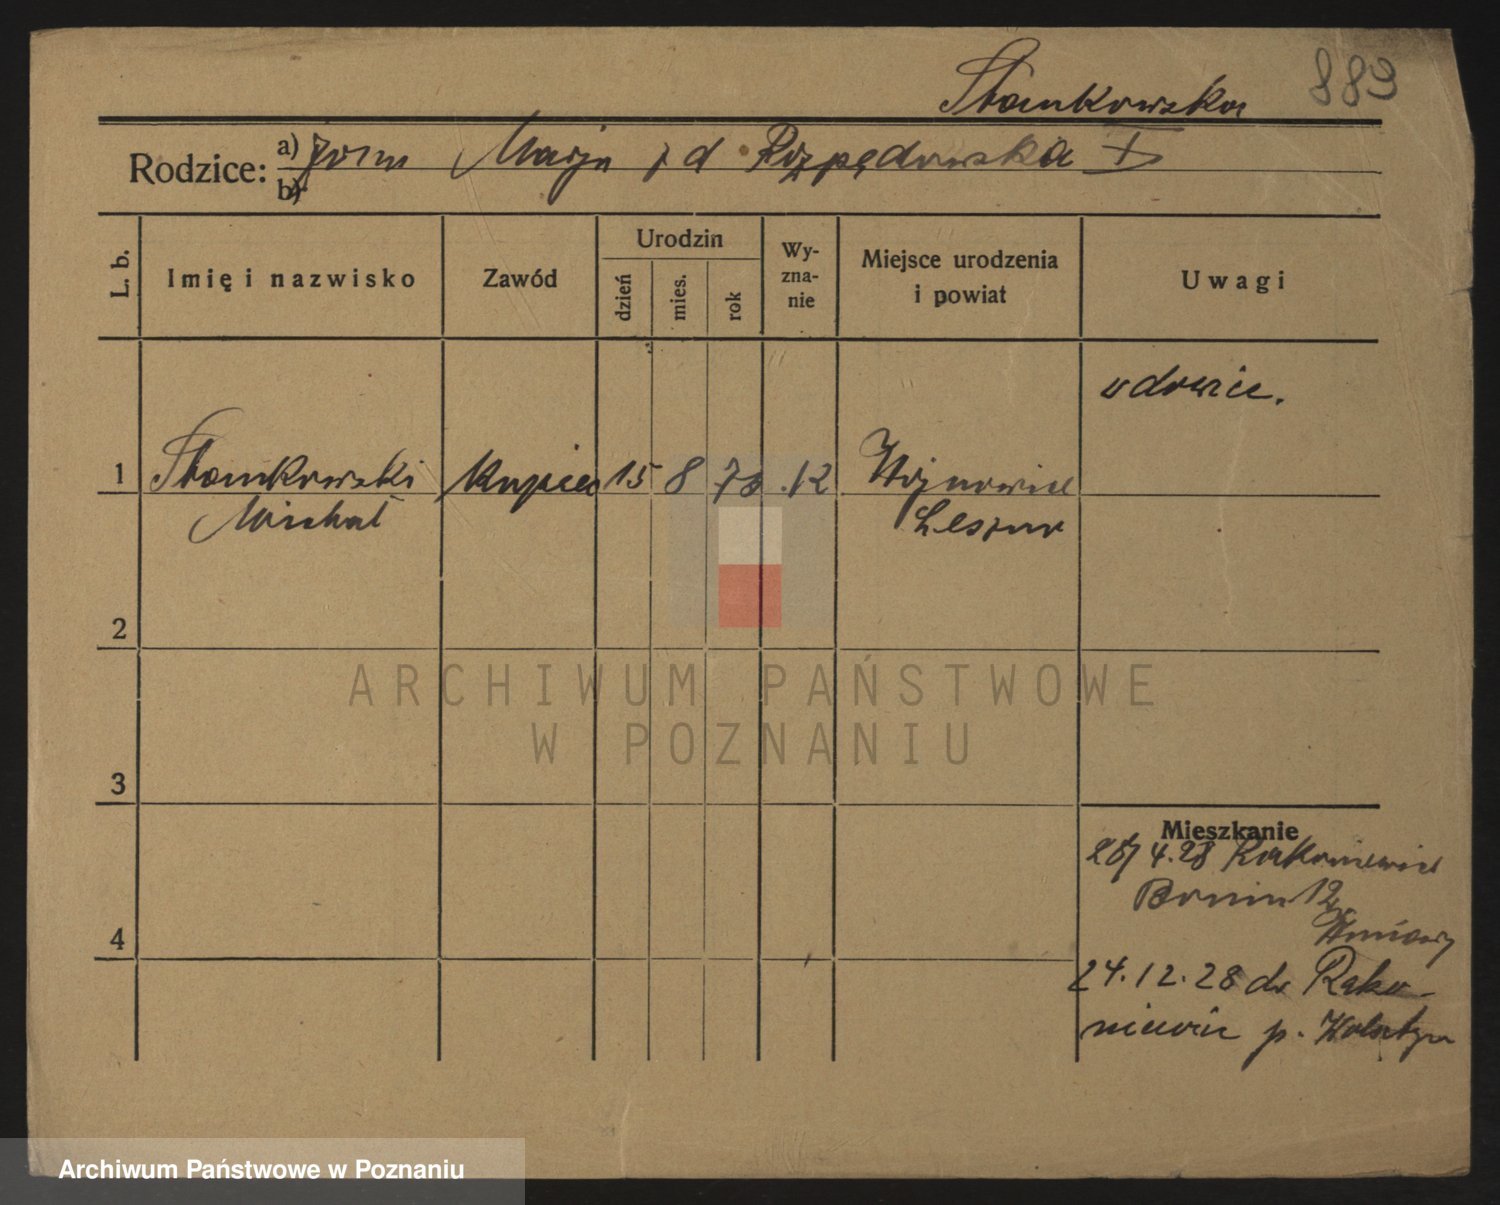 Stankowska 889
Rodzice: a) Jan Marja z d Rozpędowska
b)
L. b. Imię i nazwisko Zawód Urodzin dzień mies. rok Wyznanie Miejsce urodzenia i powiat Uwagi
wdowiec.
1 Stankowski kupiec 15 8 73 rk Wojnowice
Michał Leszno
2
3
4
Mieszkanie
28/4.28 Rakoniewice
Bonin 12
24.12.28 do Rako-
niewic p. Wolsztyn
ARCHIWUM PAŃSTWOWE
W POZNANIU
Archiwum Państwowe w Poznaniu